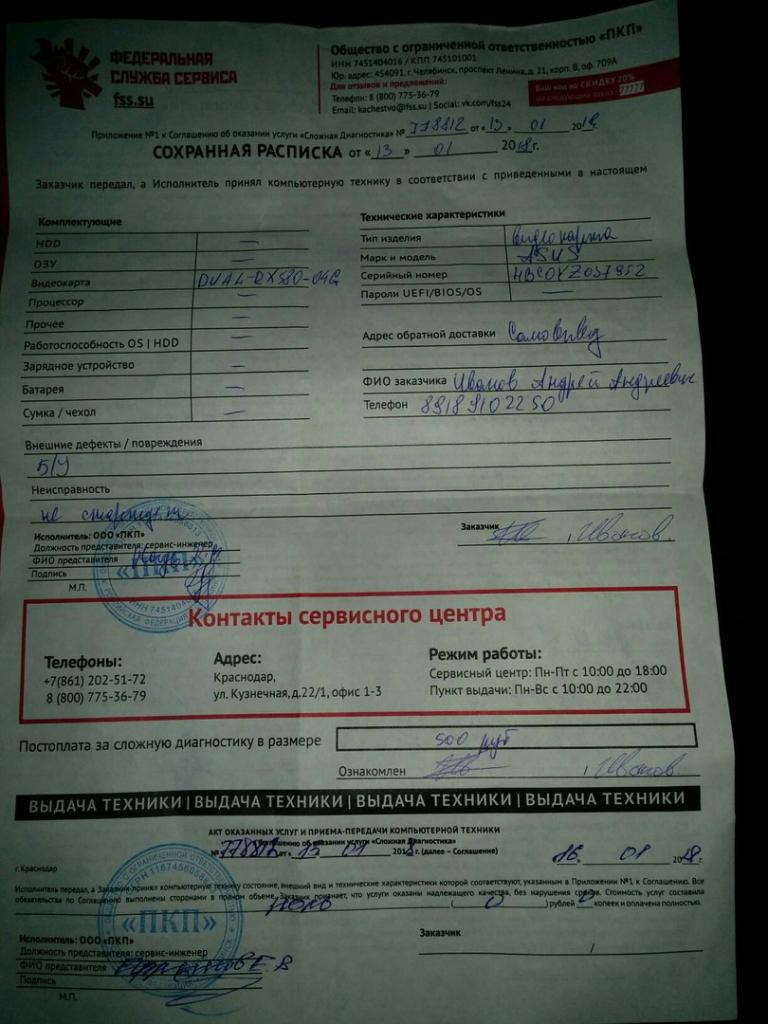 ФЕДЕРАЛЬНАЯ
СЛУЖБА СЕРВИСА
fss.su
Общество с ограниченной ответственностью «ПКП»
ИНН 7451404016 / КПП 745101001
Юр. адрес: 454091, г. Челябинск, проспект Ленина, д. 21, корп. В, оф. 709А
Для отзывов и предложений:
Телефон: 8 (800) 775-36-79
Email: kachestvo@fss.su | Social: vk.com/fss24
Ваш код на СКИДКУ 20%
на следующий заказ 77777
Приложение №1 к Соглашению об оказании услуги «Сложная Диагностика» № 778812 от « 13 » 01 2018
СОХРАННАЯ РАСПИСКА от « 13 » 01 2018 г.
Заказчик передал, а Исполнитель принял компьютерную технику в соответствии с приведенными в настоящем
Комплектующие
HDD —
ОЗУ —
Видеокарта DUAL-RX580-04G
Процессор —
Прочее —
Работоспособность OS | HDD —
Зарядное устройство —
Батарея —
Сумка / чехол —
Технические характеристики
Тип изделия Видеокарта
Марк и модель ASUS
Серийный номер HBC0YZ057952
Пароли UEFI/BIOS/OS
Адрес обратной доставки Самовывод
ФИО заказчика Иванов Андрей Андреевич
Телефон 89189102250
Внешние дефекты / повреждения
Б/У
Неисправность
не стартует
Исполнитель: ООО «ПКП»
Должность представителя: сервис-инженер
ФИО представителя
Подпись
М.П.
«ПКП»
Заказчик , Иванов.
Контакты сервисного центра
Телефоны:
+7(861) 202-51-72
8 (800) 775-36-79
Адрес:
Краснодар,
ул. Кузнечная, д.22/1, офис 1-3
Режим работы:
Сервисный центр: Пн-Пт с 10:00 до 18:00
Пункт выдачи: Пн-Вс с 10:00 до 22:00
Постоплата за сложную диагностику в размере 500 руб
Ознакомлен / Иванов.
ВЫДАЧА ТЕХНИКИ | ВЫДАЧА ТЕХНИКИ | ВЫДАЧА ТЕХНИКИ | ВЫДАЧА ТЕХНИКИ
АКТ ОКАЗАННЫХ УСЛУГ И ПРИЕМА-ПЕРЕДАЧИ КОМПЬЮТЕРНОЙ ТЕХНИКИ
Соглашению об оказании услуги «Сложная Диагностика»
№ 778812 от « 13 01 2018 г. (далее – Соглашение)
16 . 01 2018 г.
г. Краснодар
Исполнитель передал, а Заказчик принял компьютерную технику состояние, внешний вид и технические характеристики которой соответствуют, указанным в Приложении №1 к Соглашению. Все
обязательства по Соглашению выполнены сторонами в полном объеме. Заказчик признает, что услуги оказаны надлежащего качества, без нарушения срока. Стоимость услуг составила
( 0 ) рублей 0 копеек и оплачена полностью.
«ПКП»
Исполнитель: ООО «ПКП»
Должность представителя: сервис-инженер
ФИО представителя
Подпись
М.П.
Заказчик
/